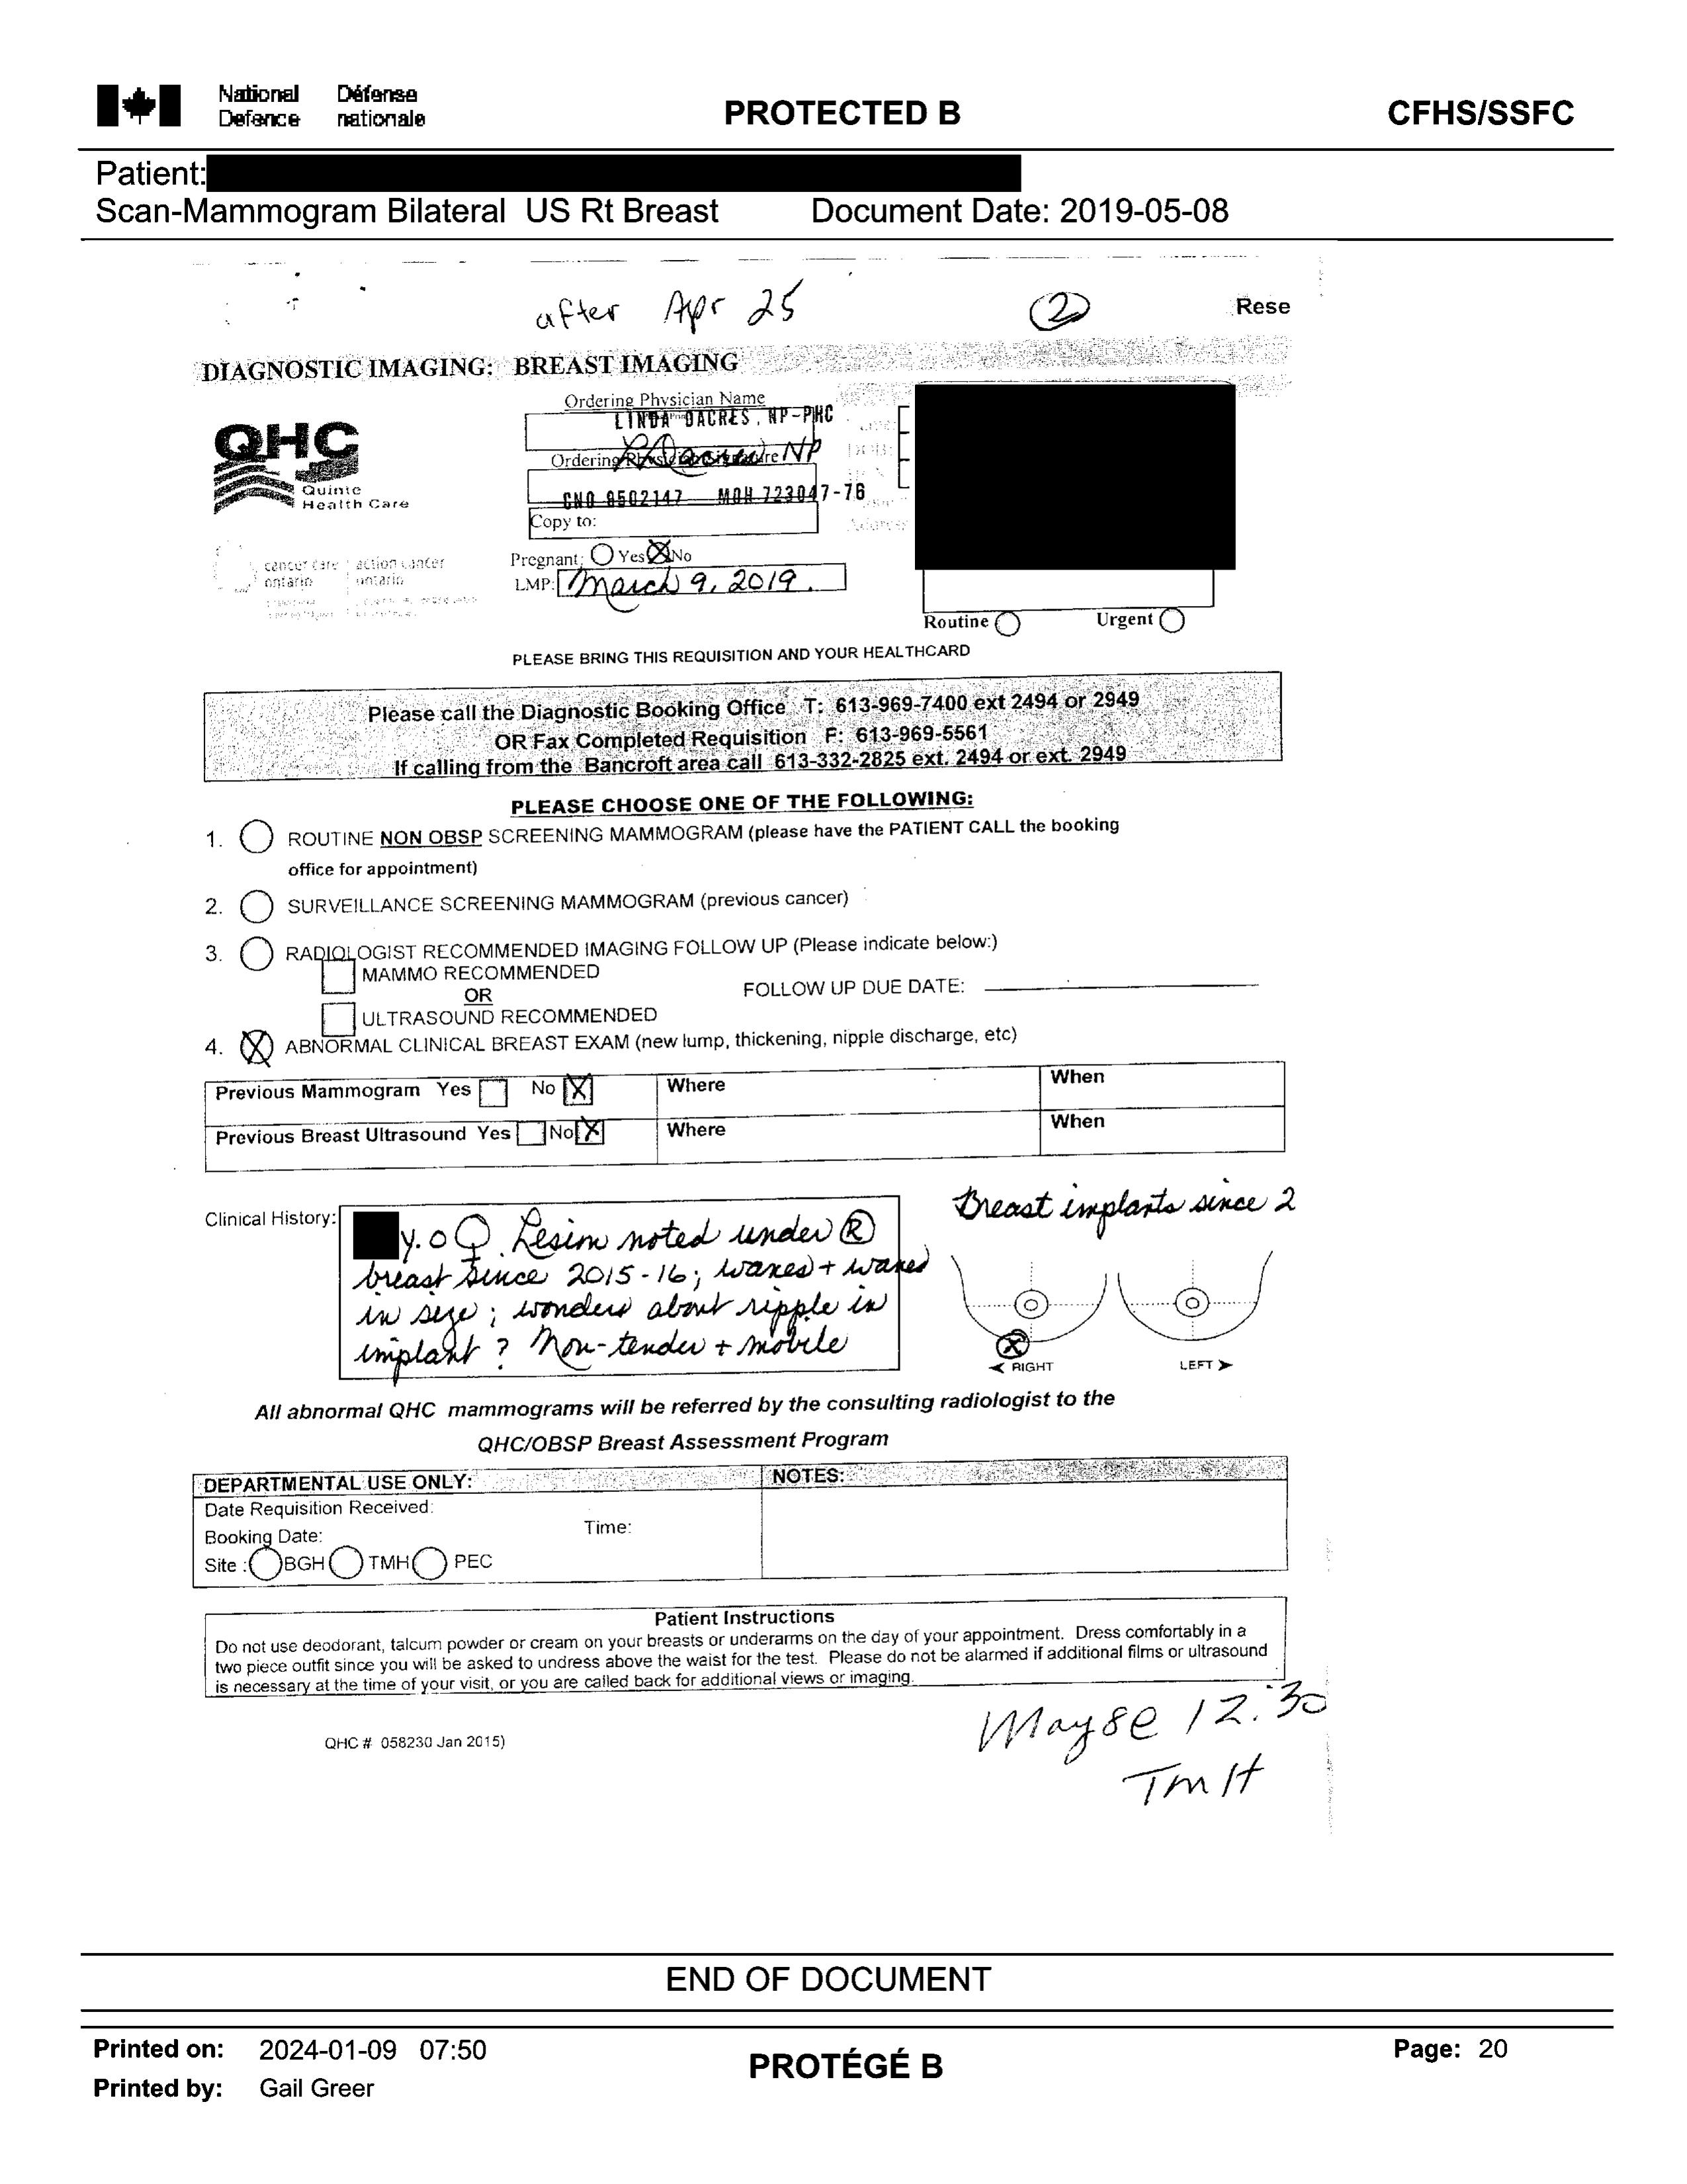 National Défense
Defence nationale
PROTECTED B
CFHS/SSFC
Patient:
Scan-Mammogram Bilateral US Rt Breast Document Date: 2019-05-08
after Apr 25
2
Rese
DIAGNOSTIC IMAGING: BREAST IMAGING
QHC
Quinte
Health Care
cancer care action cancer
ontario ontario
Ordering Physician Name
LINDA DACRES, NP-PHC
LDacres NP
CNO 9502147 MOH 723047-76
Copy to:
Pregnant: Yes No
LMP: March 9, 2019.
Routine Urgent
PLEASE BRING THIS REQUISITION AND YOUR HEALTHCARD
Please call the Diagnostic Booking Office T: 613-969-7400 ext 2494 or 2949
OR Fax Completed Requisition F: 613-969-5561
If calling from the Bancroft area call 613-332-2825 ext. 2494 or ext. 2949
PLEASE CHOOSE ONE OF THE FOLLOWING:
1. ROUTINE NON OBSP SCREENING MAMMOGRAM (please have the PATIENT CALL the booking
office for appointment)
2. SURVEILLANCE SCREENING MAMMOGRAM (previous cancer)
3. RADIOLOGIST RECOMMENDED IMAGING FOLLOW UP (Please indicate below:)
MAMMO RECOMMENDED
OR
FOLLOW UP DUE DATE:
ULTRASOUND RECOMMENDED
4. X ABNORMAL CLINICAL BREAST EXAM (new lump, thickening, nipple discharge, etc)
Previous Mammogram Yes No X Where When
Previous Breast Ultrasound Yes No X Where When
Breast implants since 2
Clinical History:
y.o ♀. Lesion noted under Ⓡ
breast since 2015-16; waxes + wanes
in size; wonders about ripple in
implant? Non-tender + mobile
X
RIGHT LEFT
All abnormal QHC mammograms will be referred by the consulting radiologist to the
QHC/OBSP Breast Assessment Program
DEPARTMENTAL USE ONLY: NOTES:
Date Requisition Received:
Booking Date: Time:
Site : BGH TMH PEC
Patient Instructions
Do not use deodorant, talcum powder or cream on your breasts or underarms on the day of your appointment. Dress comfortably in a
two piece outfit since you will be asked to undress above the waist for the test. Please do not be alarmed if additional films or ultrasound
is necessary at the time of your visit, or you are called back for additional views or imaging.
QHC # 058230 Jan 2015)
May 8 @ 12:30
TMH
END OF DOCUMENT
Printed on: 2024-01-09 07:50
PROTÉGÉ B
Page: 20
Printed by: Gail Greer